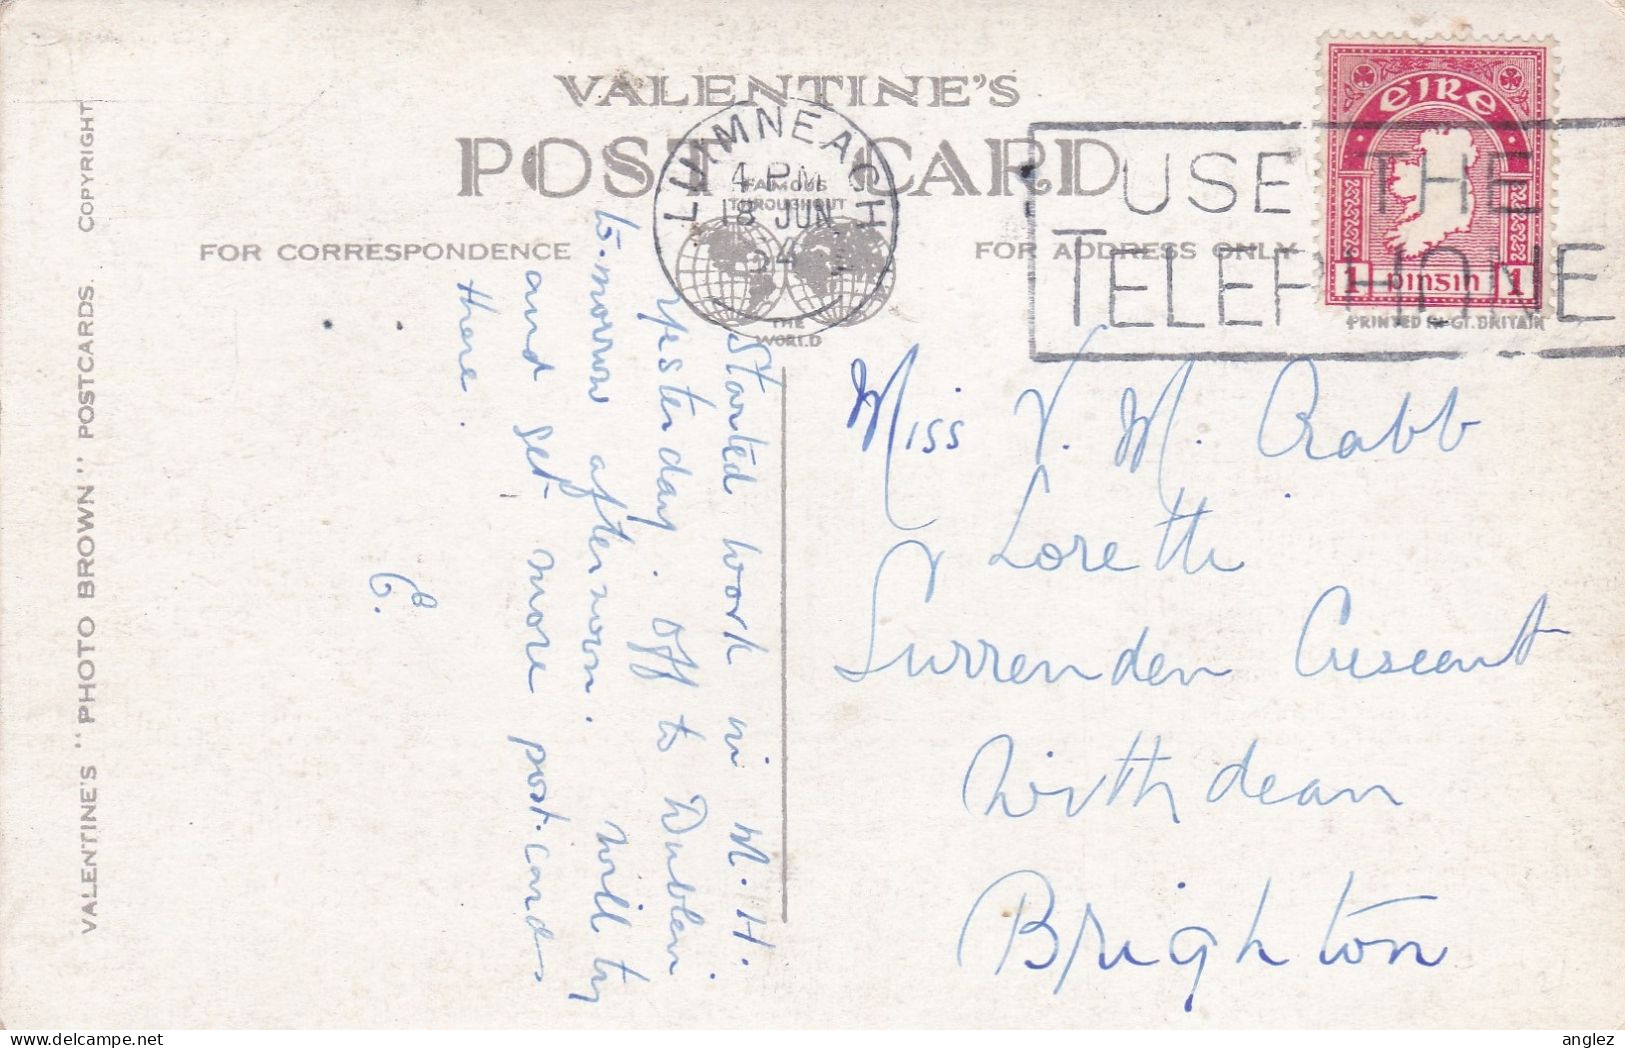 VALENTINE'S
POST CARD
FAMOUS
THROUGHOUT
THE
WORLD
FOR CORRESPONDENCE
FOR ADDRESS ONLY
LUIMNEACH
4 PM
18 JUN
54
USE THE
TELEPHONE
ÉIRE
1 pinsin 1
PRINTED IN GT. BRITAIN
VALENTINE'S "PHOTO BROWN" POSTCARDS. COPYRIGHT
Started work in M.H.
yesterday. Off to Dublin
to-morrow afternoon. Will try
and get more post-cards
there.
Miss V. M. Rabb
Loretti
Surrenden Crescent
Withdean
Brighton
www.delcampe.net
anglez